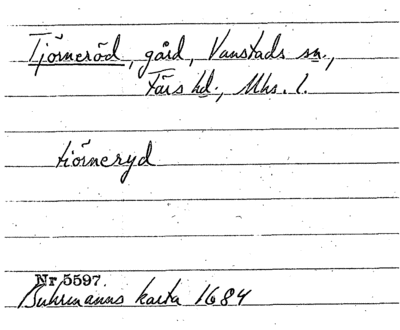 Tjörneröd, gård, Vanstads sn.,
Färs hd., Mhs. l.
tiörneryd
Nr 5597.
Buhrmanns karta 1684